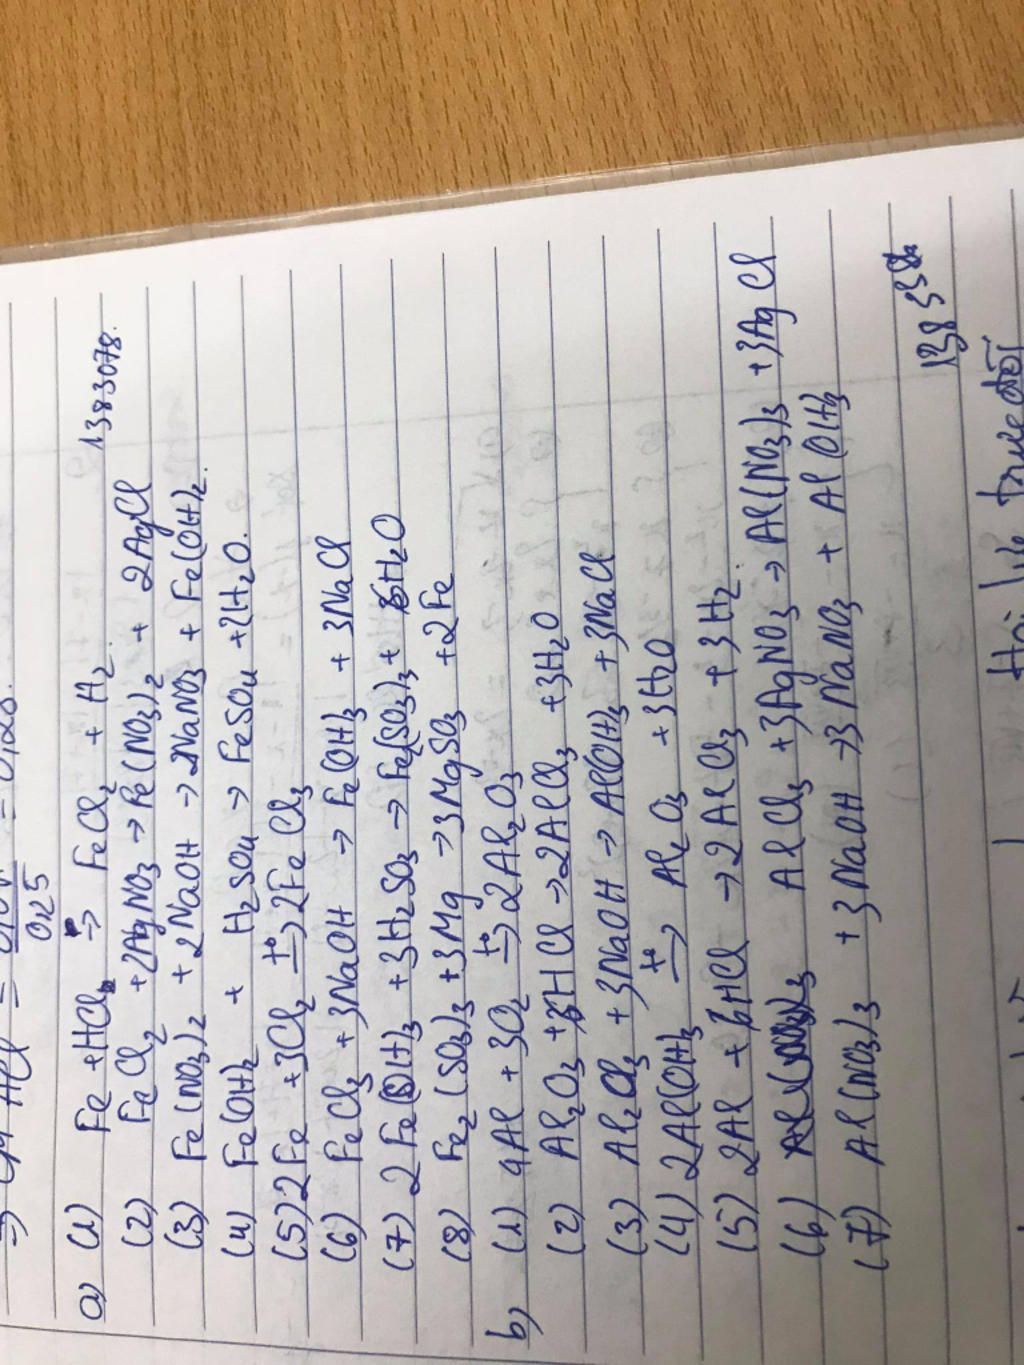 => CM HCl = = 0,25.
0,25
a) (1) Fe + HCl → FeCl2 + H2. 1383078.
(2) FeCl2 + 2AgNO3 → Fe(NO3)2 + 2AgCl
(3) Fe(NO3)2 + 2NaOH → 2NaNO3 + Fe(OH)2.
(4) Fe(OH)2 + H2SO4 → FeSO4 + 2H2O.
(5) 2Fe + 3Cl2 t° → 2FeCl3
(6) FeCl3 + 3NaOH → Fe(OH)3 + 3NaCl
(7) 2Fe(OH)3 + 3H2SO3 → Fe2(SO3)3 + 6H2O
(8) Fe2(SO3)3 + 3Mg → 3MgSO3 + 2Fe
b) (1) 4Al + 3O2 t° → 2Al2O3
(2) Al2O3 + 6HCl → 2AlCl3 + 3H2O
(3) Al2Cl3 + 3NaOH → Al(OH)3 + 3NaCl
(4) 2Al(OH)3 t° → Al2O3 + 3H2O
(5) 2Al + 6HCl → 2AlCl3 + 3H2.
(6) AlCl3 + 3AgNO3 → Al(NO3)3 + 3AgCl
(7) Al(NO3)3 + 3NaOH → 3NaNO3 + Al(OH)3
Hỏi 16 trước tối